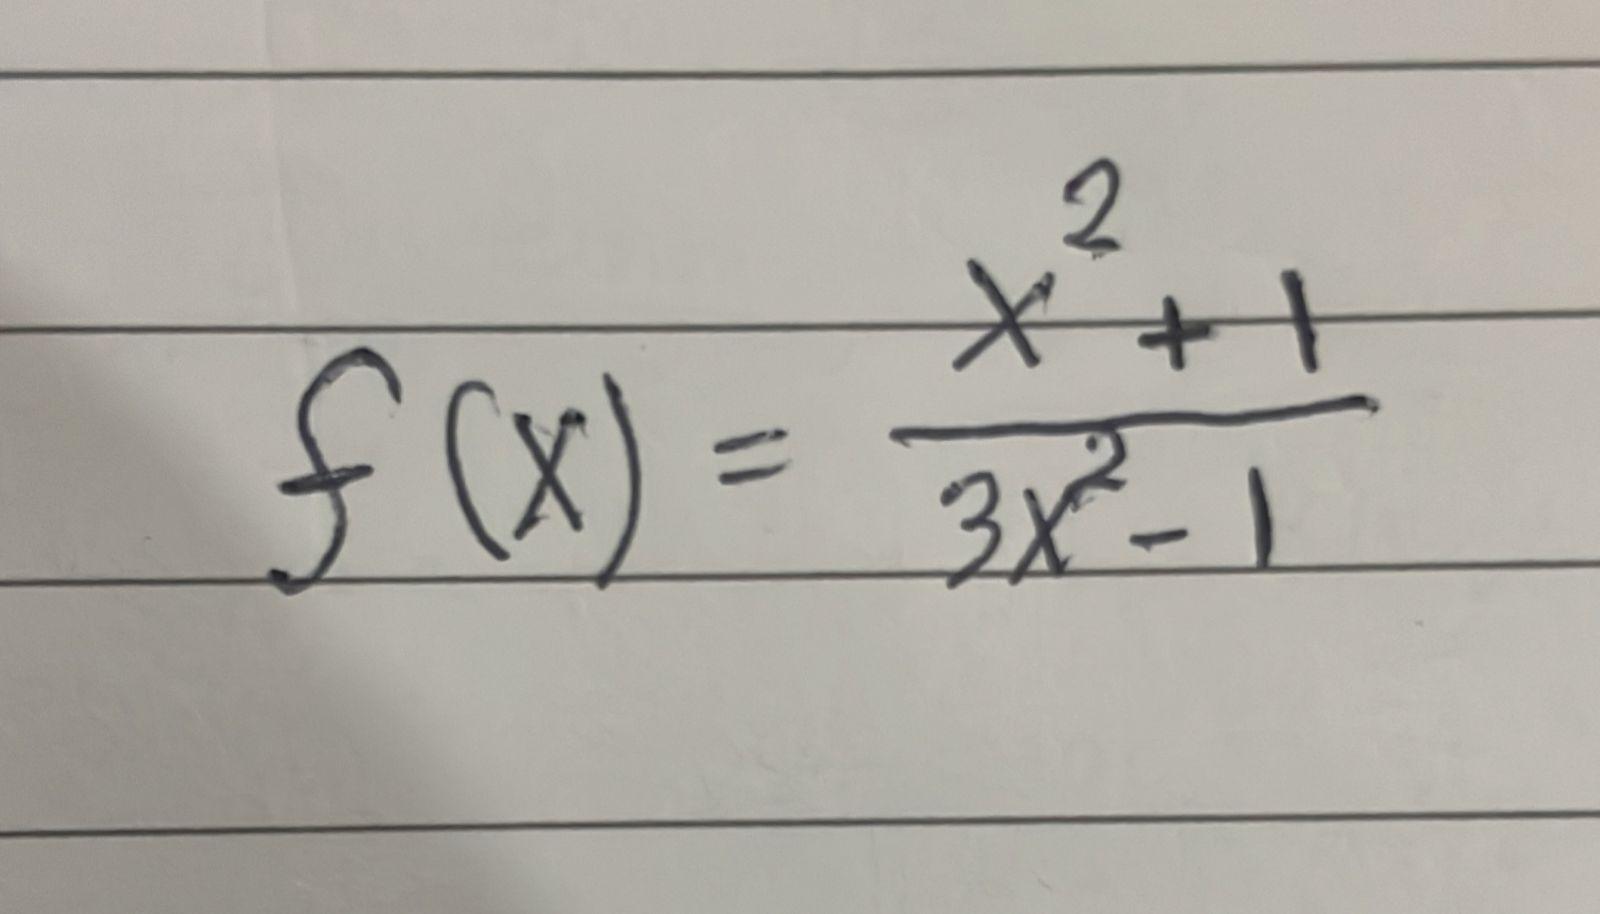 f(x) = \frac{x^2 + 1}{3x^2 - 1}